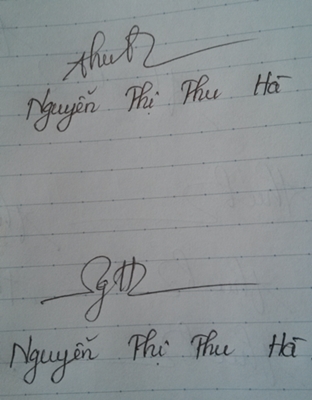 Nguyễn Thị Thu Hà
Nguyễn Thị Thu Hà